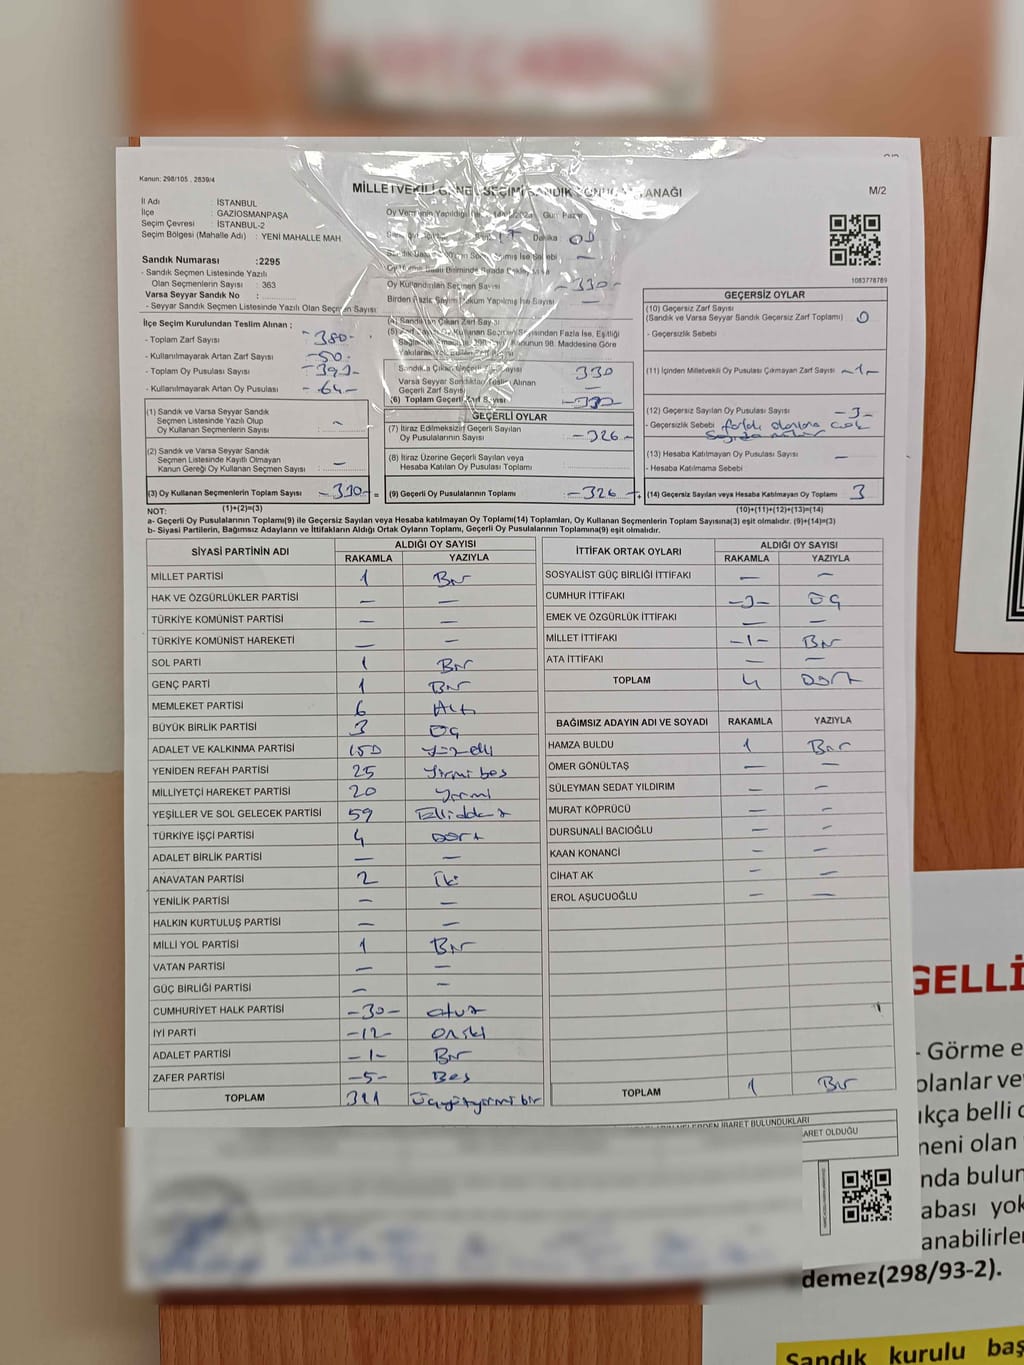 Kanun: 298/105 , 2839/4
MİLLETVEKİLİ GENEL SEÇİMİ SANDIK SONUÇ TUTANAĞI
M/2
İl Adı : İSTANBUL
İlçe : GAZİOSMANPAŞA
Seçim Çevresi : İSTANBUL-2
Seçim Bölgesi (Mahalle Adı) : YENİ MAHALLE MAH.
Sandık Numarası :2295
- Sandık Seçmen Listesinde Yazılı
Olan Seçmenlerin Sayısı : 363
Varsa Seyyar Sandık No :
- Seyyar Sandık Seçmen Listesinde Yazılı Olan Seçmen Sayısı
İlçe Seçim Kurulundan Teslim Alınan ;
- Toplam Zarf Sayısı -380-
- Kullanılmayarak Artan Zarf Sayısı -50-
- Toplam Oy Pusulası Sayısı
- Kullanılmayarak Artan Oy Pusulası -64-
(1) Sandık ve Varsa Seyyar Sandık
Seçmen Listesinde Yazılı Olup
Oy Kullanan Seçmenlerin Sayısı : -
(2) Sandık ve Varsa Seyyar Sandık
Seçmen Listesinde Kayıtlı Olmayan
Kanun Gereği Oy Kullanan Seçmen Sayısı : -
(3) Oy Kullanan Seçmenlerin Toplam Sayısı -330- =
(1)+(2)=(3)
Oy Verme Gün Pazar
Dakika 00
Oy Kullandırılan Seçmen Sayısı -330-
Birden Fazla Sayım Döküm Yapılmış İse Sayısı —
(4) Sandıktan Çıkan Zarf Sayısı
Sandıkta Çıkan Geçerli Zarf Sayısı 330
Varsa Seyyar Sandıktan Teslim Alınan
Geçerli Zarf Sayısı —
(6) Toplam Geçerli Zarf Sayısı -330-
GEÇERLİ OYLAR
(7) İtiraz Edilmeksizin Geçerli Sayılan
Oy Pusulalarının Sayısı -326-
(8) İtiraz Üzerine Geçerli Sayılan veya
Hesaba Katılan Oy Pusulası Toplamı :
(9) Geçerli Oy Pusulalarının Toplamı -326- +
1083778789
GEÇERSİZ OYLAR
(10) Geçersiz Zarf Sayısı
(Sandık ve Varsa Seyyar Sandık Geçersiz Zarf Toplamı) 0
- Geçersizlik Sebebi
(11) İçinden Milletvekili Oy Pusulası Çıkmayan Zarf Sayısı -1-
(12) Geçersiz Sayılan Oy Pusulası Sayısı -3-
- Geçersizlik Sebebi
(13) Hesaba Katılmayan Oy Pusulası Sayısı —
- Hesaba Katılmama Sebebi
(14) Geçersiz Sayılan veya Hesaba Katılmayan Oy Toplamı 3
(10)+(11)+(12)+(13)=(14)
NOT:
a- Geçerli Oy Pusulalarının Toplamı(9) ile Geçersiz Sayılan veya Hesaba katılmayan Oy Toplamı(14) Toplamları, Oy Kullanan Seçmenlerin Toplam Sayısına(3) eşit olmalıdır. (9)+(14)=(3)
b- Siyasi Partilerin, Bağımsız Adayların ve İttifakların Aldığı Ortak Oyların Toplamı, Geçerli Oy Pusulalarının Toplamına(9) eşit olmalıdır.
SİYASİ PARTİNİN ADI ALDIĞI OY SAYISI
RAKAMLA YAZIYLA
MİLLET PARTİSİ 1 Bir
HAK VE ÖZGÜRLÜKLER PARTİSİ — —
TÜRKİYE KOMÜNİST PARTİSİ — —
TÜRKİYE KOMÜNİST HAREKETİ — —
SOL PARTİ 1 Bir
GENÇ PARTİ 1 Bir
MEMLEKET PARTİSİ 6 Altı
BÜYÜK BİRLİK PARTİSİ 3 Üç
ADALET VE KALKINMA PARTİSİ 150 Yüzelli
YENİDEN REFAH PARTİSİ 25 Yirmi beş
MİLLİYETÇİ HAREKET PARTİSİ 20 Yirmi
YEŞİLLER VE SOL GELECEK PARTİSİ 59 Ellidokuz
TÜRKİYE İŞÇİ PARTİSİ 4 Dört
ADALET BİRLİK PARTİSİ — —
ANAVATAN PARTİSİ 2 İki
YENİLİK PARTİSİ — —
HALKIN KURTULUŞ PARTİSİ — —
MİLLİ YOL PARTİSİ 1 Bir
VATAN PARTİSİ — —
GÜÇ BİRLİĞİ PARTİSİ — —
CUMHURİYET HALK PARTİSİ -30- Otuz
İYİ PARTİ -12- Oniki
ADALET PARTİSİ -1- Bir
ZAFER PARTİSİ -5- Beş
TOPLAM 321 Üçyüzyirmi bir
İTTİFAK ORTAK OYLARI ALDIĞI OY SAYISI
RAKAMLA YAZIYLA
SOSYALİST GÜÇ BİRLİĞİ İTTİFAKI — —
CUMHUR İTTİFAKI -3- Üç
EMEK VE ÖZGÜRLÜK İTTİFAKI — —
MİLLET İTTİFAKI -1- Bir
ATA İTTİFAKI — —
TOPLAM 4 Dört
BAĞIMSIZ ADAYIN ADI VE SOYADI RAKAMLA YAZIYLA
HAMZA BULDU 1 Bir
ÖMER GÖNÜLTAŞ — —
SÜLEYMAN SEDAT YILDIRIM — —
MURAT KÖPRÜCÜ — —
DURSUNALİ BACIOĞLU — —
KAAN KONANCİ — —
CİHAT AK — —
EROL AŞUCUOĞLU — —
TOPLAM 1 Bir
İBARET BULUNDUKLARI
ARET OLDUĞU
GELLİ
- Görme e
olanlar ve
ıkça belli o
neni olan
nda bulun
abası yok
anabilirler
demez(298/93-2).
Sandık kurulu baş